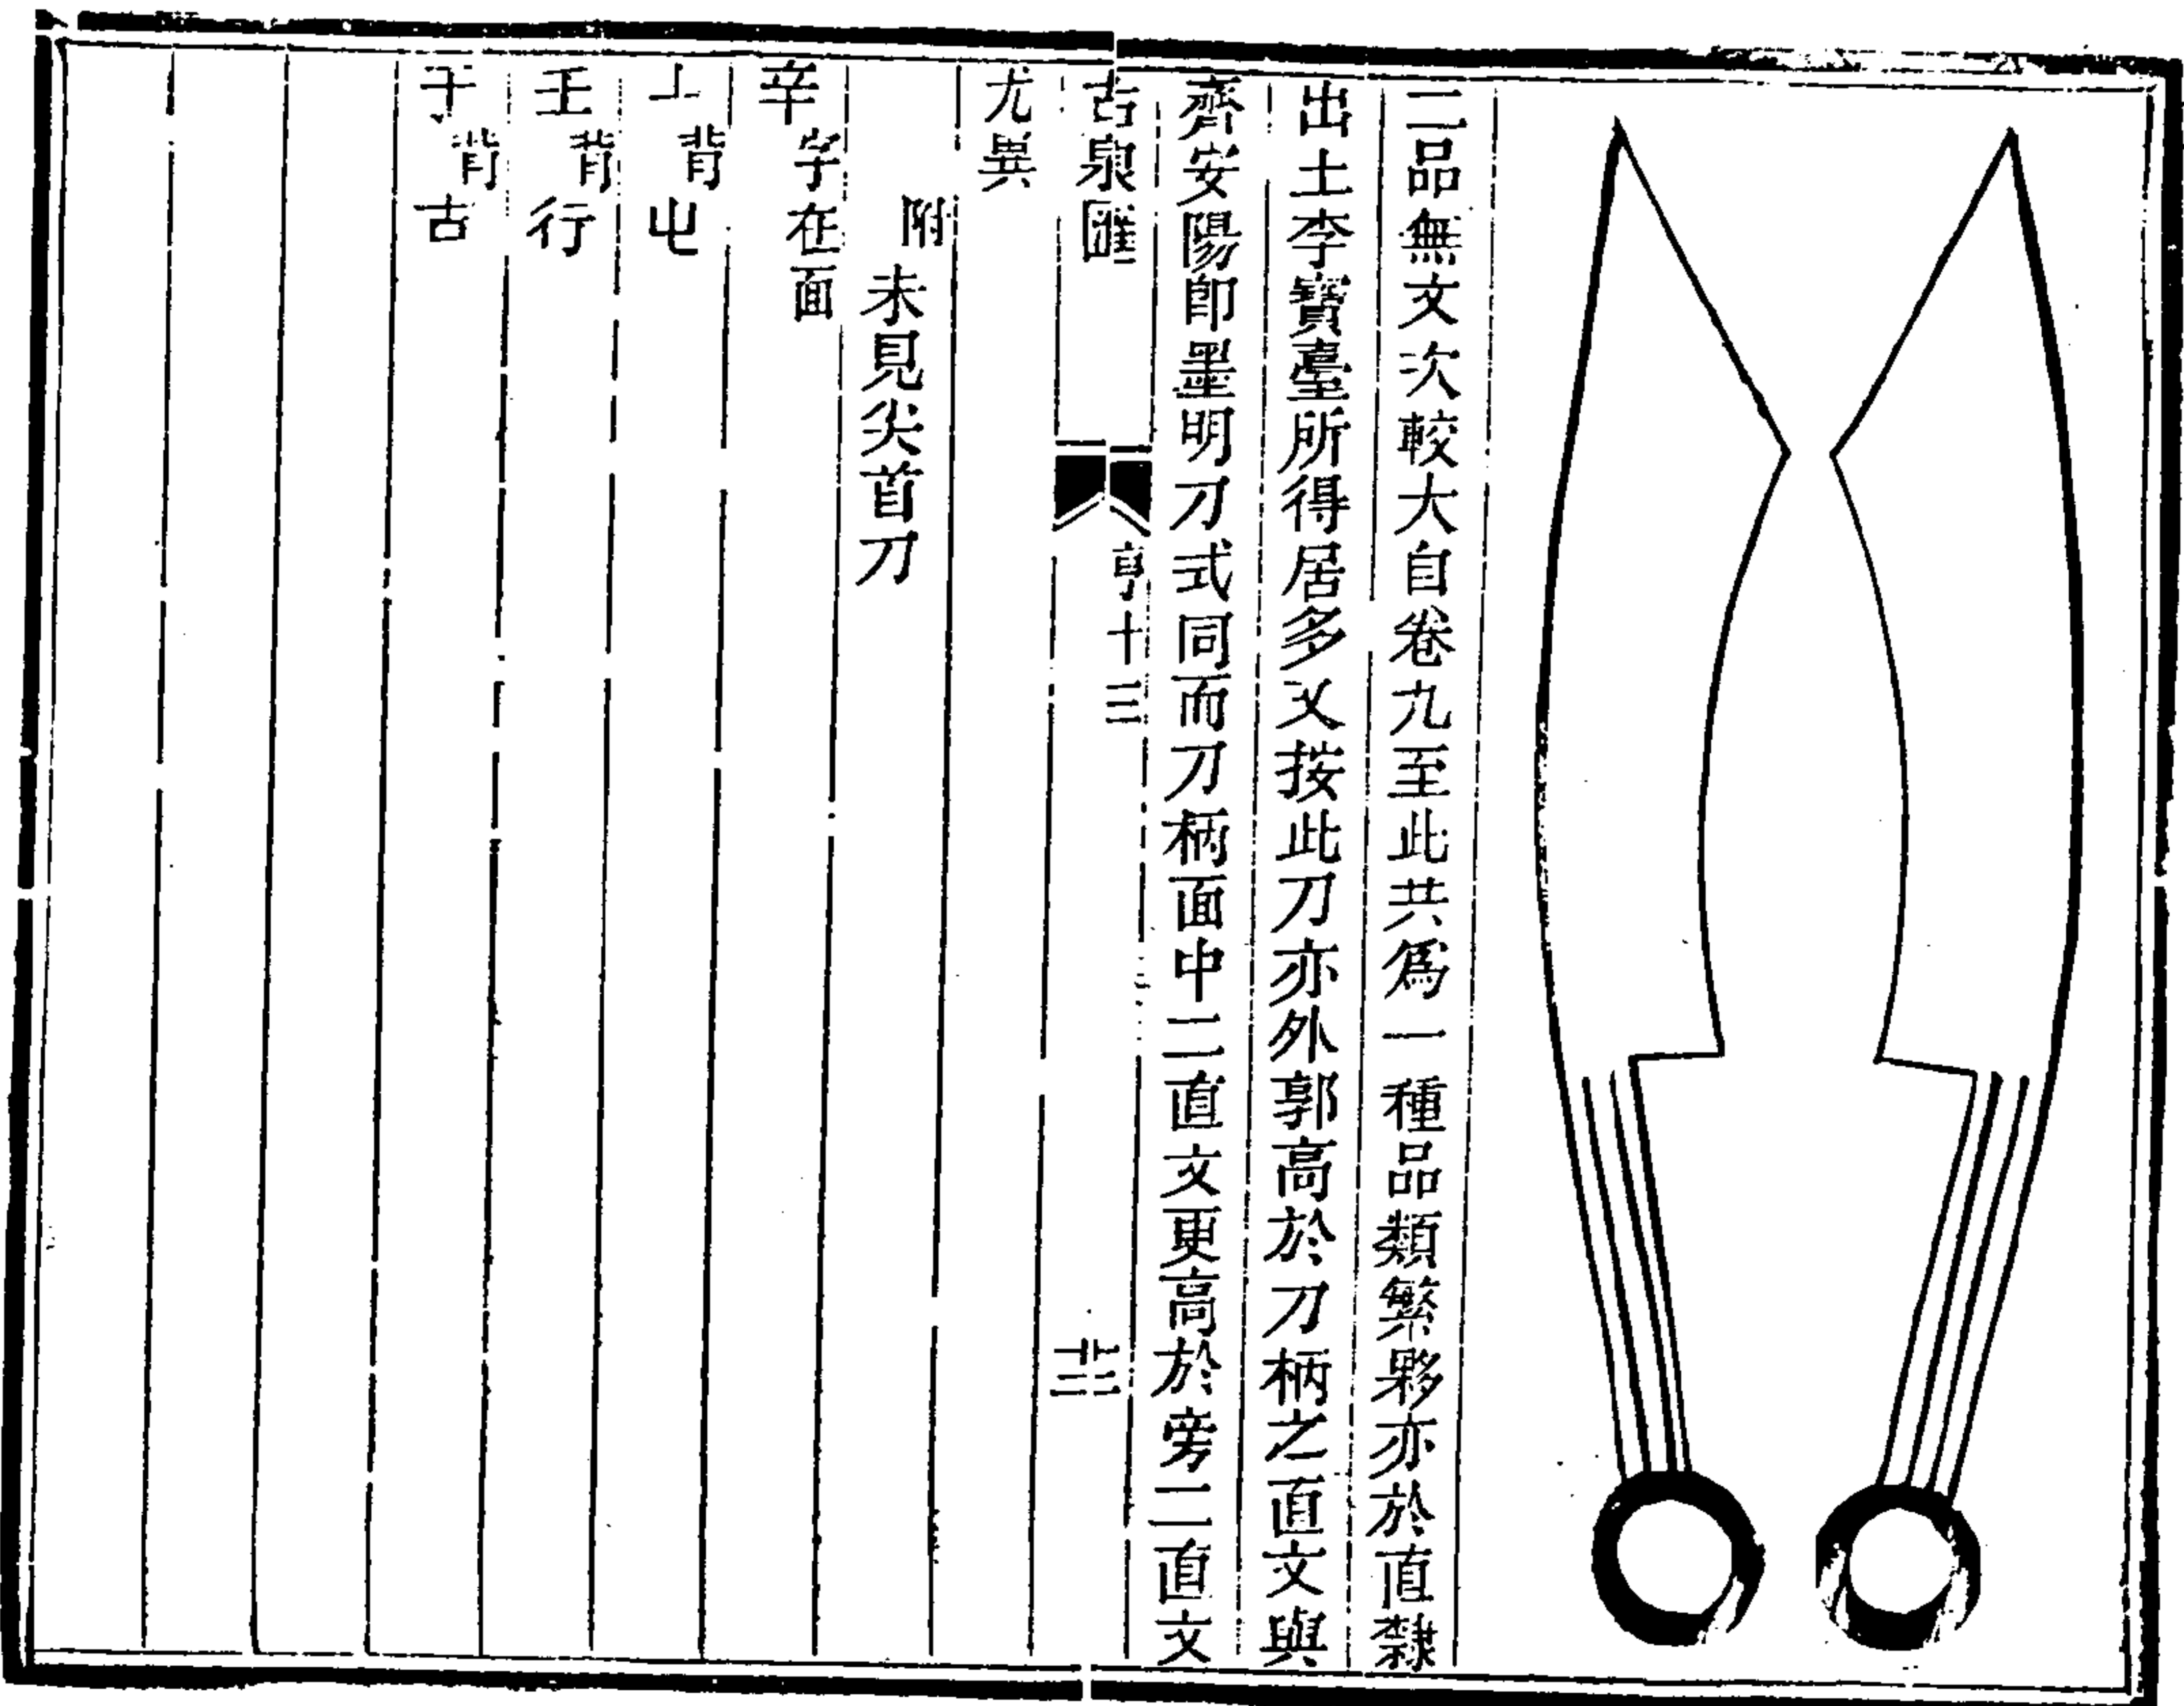 二品無文次較大自卷九至此共爲一種品類繁夥亦於直隸
出土李寶臺所得居多又按此刀亦外郭高於刀柄之直文與
齊安陽卽墨明刀式同而刀柄面中二直文更高於旁二直文
古泉匯 亨十三 廿三
尤異
附未見尖首刀
辛字在面
丄背屯
壬背行
于背古